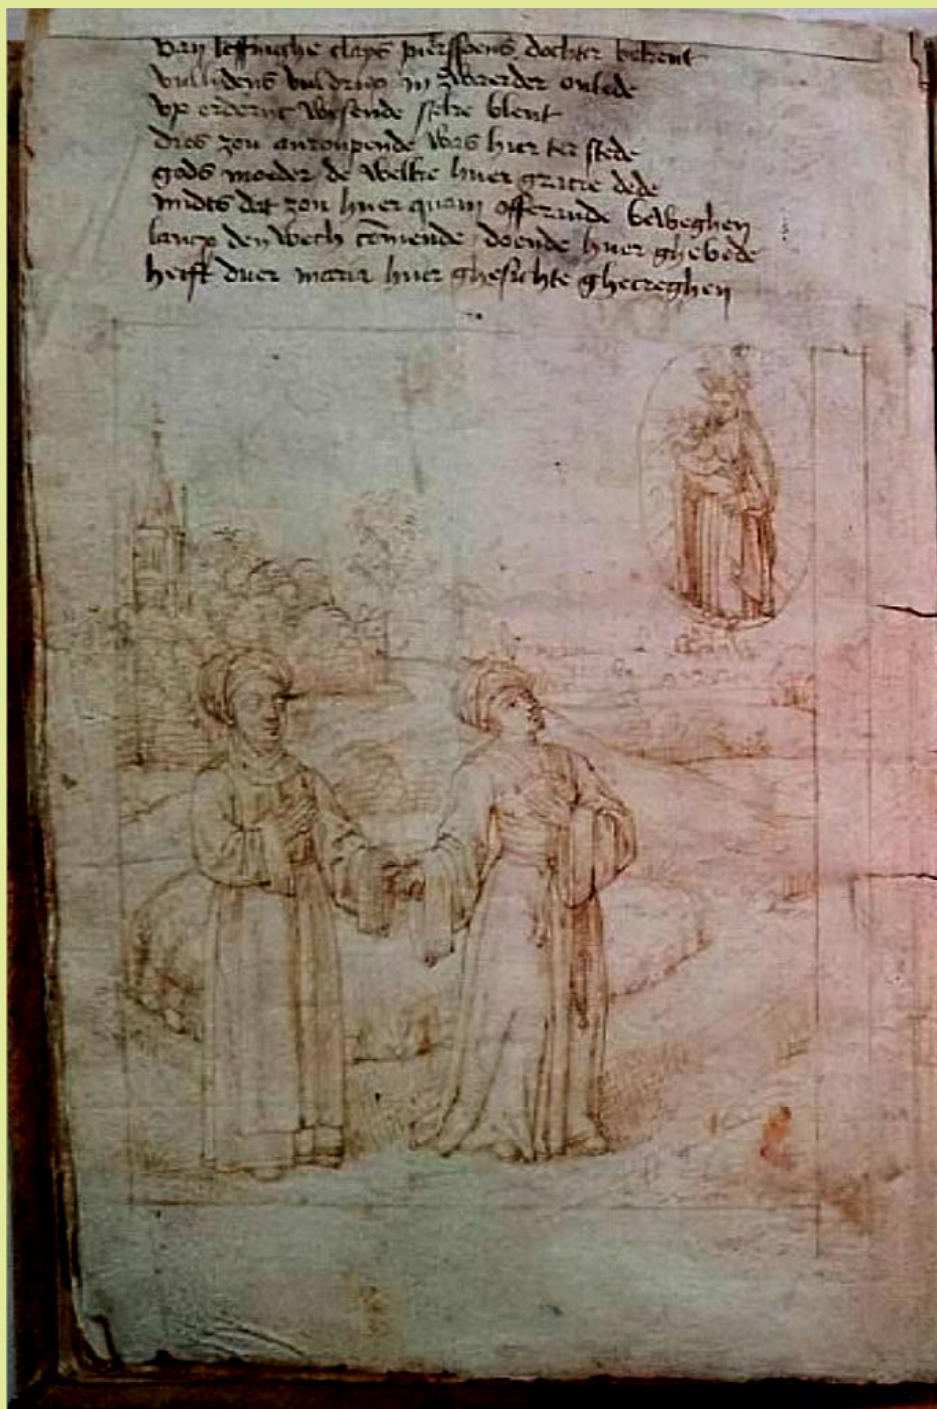 van leffinghe clays pierssoens dochter bekent
vul lydens vul druc in zwaerder onlede
up erderic wesende stelre blent
dies zou anroupende was hier ter stede
gods moeder de welke huer gracie dede
midts dat zou huer quam offerande beweghen
lancx den wech commende doende huer ghebede
heift duer maria huer ghesichte ghecreghen